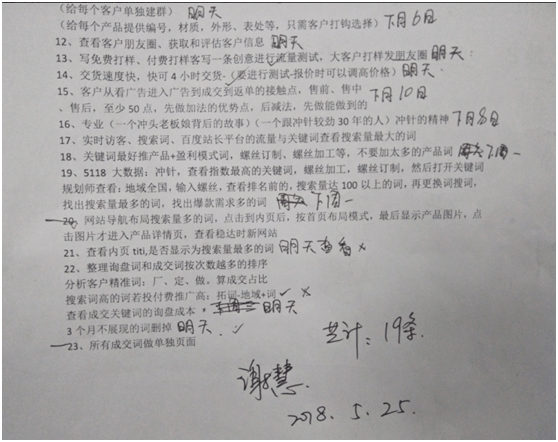 (给每个客户单独建群) 明天
(给每个产品提供编号，材质，外形、表处等，只需客户打钩选择) 下月6日
12、查看客户朋友圈、获取和评估客户信息 明天
13、写免费打样、付费打样客写一条创意进行流量测试，大客户打样发朋友圈 明天
14、交货速度快，快可4小时交货-（要进行测试-报价时可以调高价格）明天
15、客户从看广告进入广告到成交到返单的接触点，售前、售中 下月10日
、售后，至少50点，先做加法的优势点，后减法，先做能做到的
16、专业（一个冲头老板娘背后的故事）（一个跟冲针较劲30年的人）冲针的精神 下月8日
17、实时访客、搜索词、百度站长平台的流量与关键词查看搜索量最大的词
18、关键词最好推产品+盈利模式词，螺丝订制、螺丝加工等，不要加太多的产品词 下周一
19、5118 大数据：冲针，查看指数最高的关键词，螺丝加工，螺丝订制，然后打开关键词
规划师查看：地域全国，输入螺丝，查看排名前的，搜索量达100以上的词，再更换词搜词，
找出搜索量最多的词，找出爆款需求多的词 下周一
20、网站导航布局搜索量多的词，点击到内页后，按首页布局模式，最后显示产品图片，点
击图片才进入产品详情页，查看稳达时新网站
21、查看内页titi,是否显示为搜索量最多的词 明天查看 ×
22、整理询盘词和成交词按次数越多的排序
分析客户精准词：厂、定、做。算成交占比
搜索词高的词若投付费推广高：拓词-地域+词 ✓ ×
查看成交关键词的询盘成本。 明天
3个月不展现的词删掉 明天. ✓
23、所有成交词做单独页面
共计：19条.
谢慧.
2018. 5. 25.